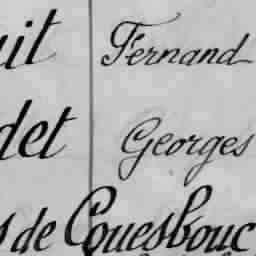 uit Fernand
det Georges
s de Couësbouc